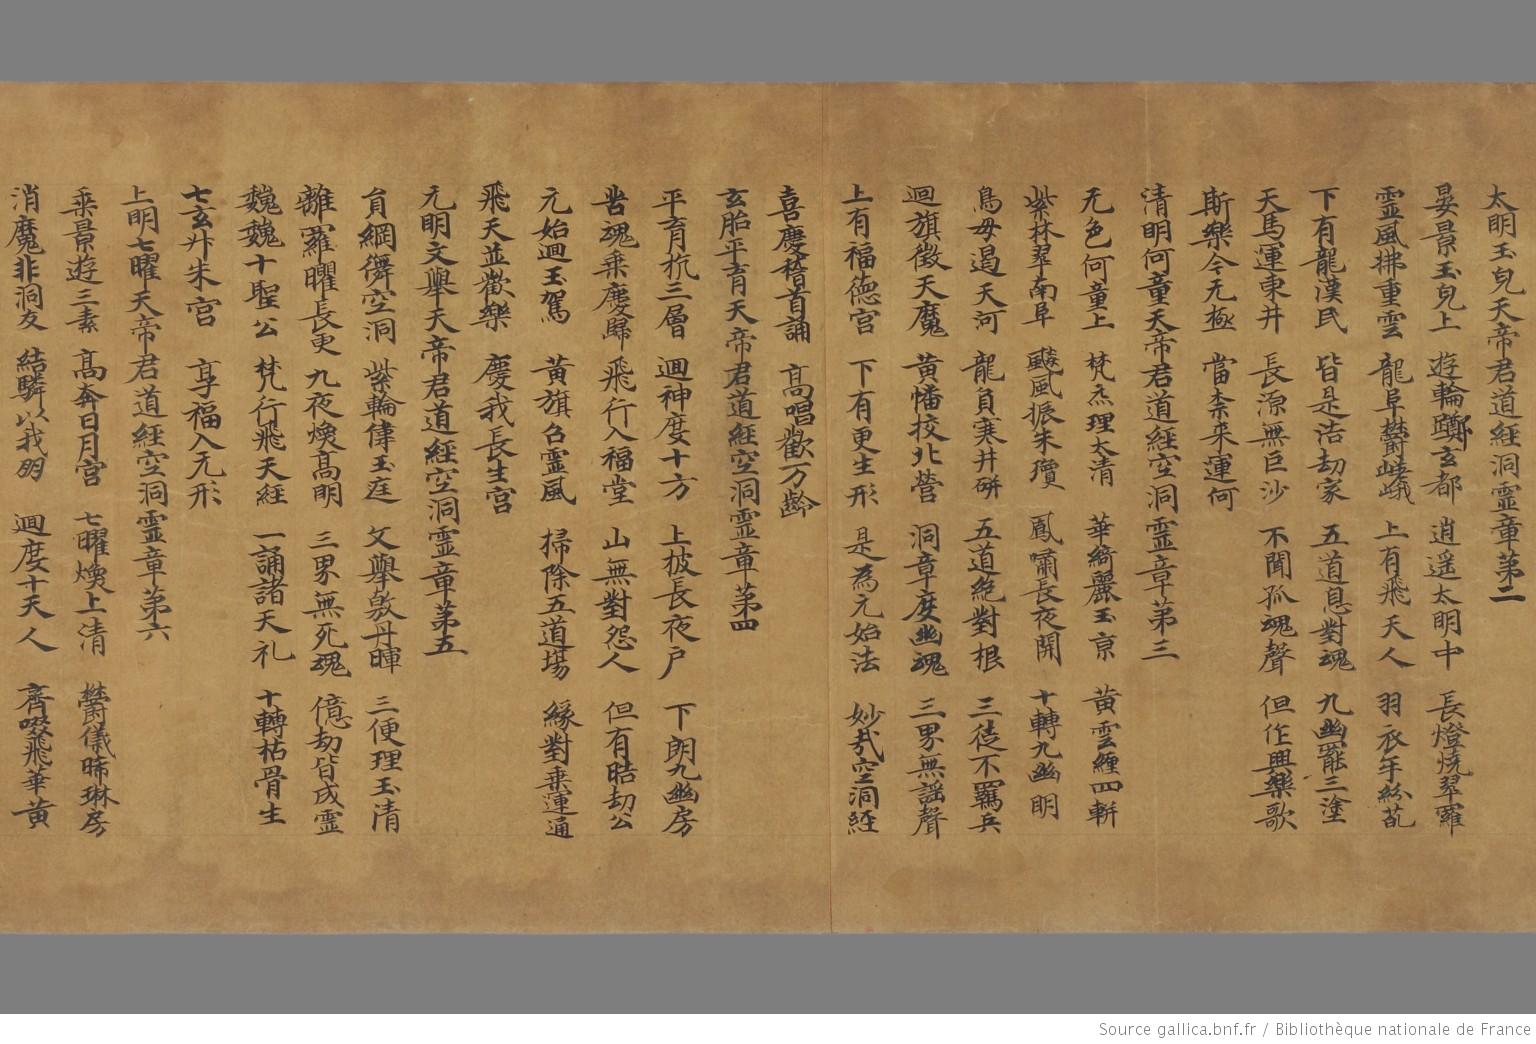 太明玉皃天帝君道經洞靈章第二
晏景玉皃上 遊輪躑玄都 逍遥太明中 長燈燒翠羅
霊風拂重雲 龍阜欝嵯峨 上有飛天人 羽衣年紛葩
下有龍漢民 皆是浩劫家 五道息對魂 九幽罷三塗
天馬運東井 長源無巨沙 不聞孤魂聲 但作興樂歌
斯樂今无極 當柰来運何
清明何童天帝君道經空洞靈章第三
无色何童上 梵炁理太清 華綺麗玉京 黄雲纏四軿
紫林翠南阜 飈風振朱瓊 鳳嘯長夜開 十轉九幽明
鳥母遏天河 龍負寒井研 五道絶對根 三徒不羈兵
迴旗徵天魔 黄幡校北營 洞章度幽魂 三界無謡聲
上有福德宫 下有更生形 是為元始法 妙哉空洞經
喜慶稽首誦 髙唱歡万齡
玄胎平育天帝君道經空洞霊章第四
平育抗三層 迴神度十方 上披長夜户 下朗九幽房
苦魂乘慶歸 飛行入福堂 山無對怨人 但有晧劫公
元始迴玉駕 黄旗召霊風 掃除五道場 緣對乘運通
飛天並歡樂 慶我長生宫
元明文舉天帝君道經空洞霊章第五
負綱彌空洞 紫輪偉玉庭 文舉敫丹暉 三便理玉清
離羅曜長更 九夜煥髙明 三界無死魂 億劫皆成霊
巍巍十聖公 梵行飛天經 一誦諸天礼 十轉枯骨生
七玄升朱宫 享福入无形
上明七曜天帝君道經空洞霊章第六
乘景遊三素 髙奔日月宫 七曜煥上清 欝儀晞琳房
消魔非洞友 結驎以我明 迴度十天人 齊啜飛華黄